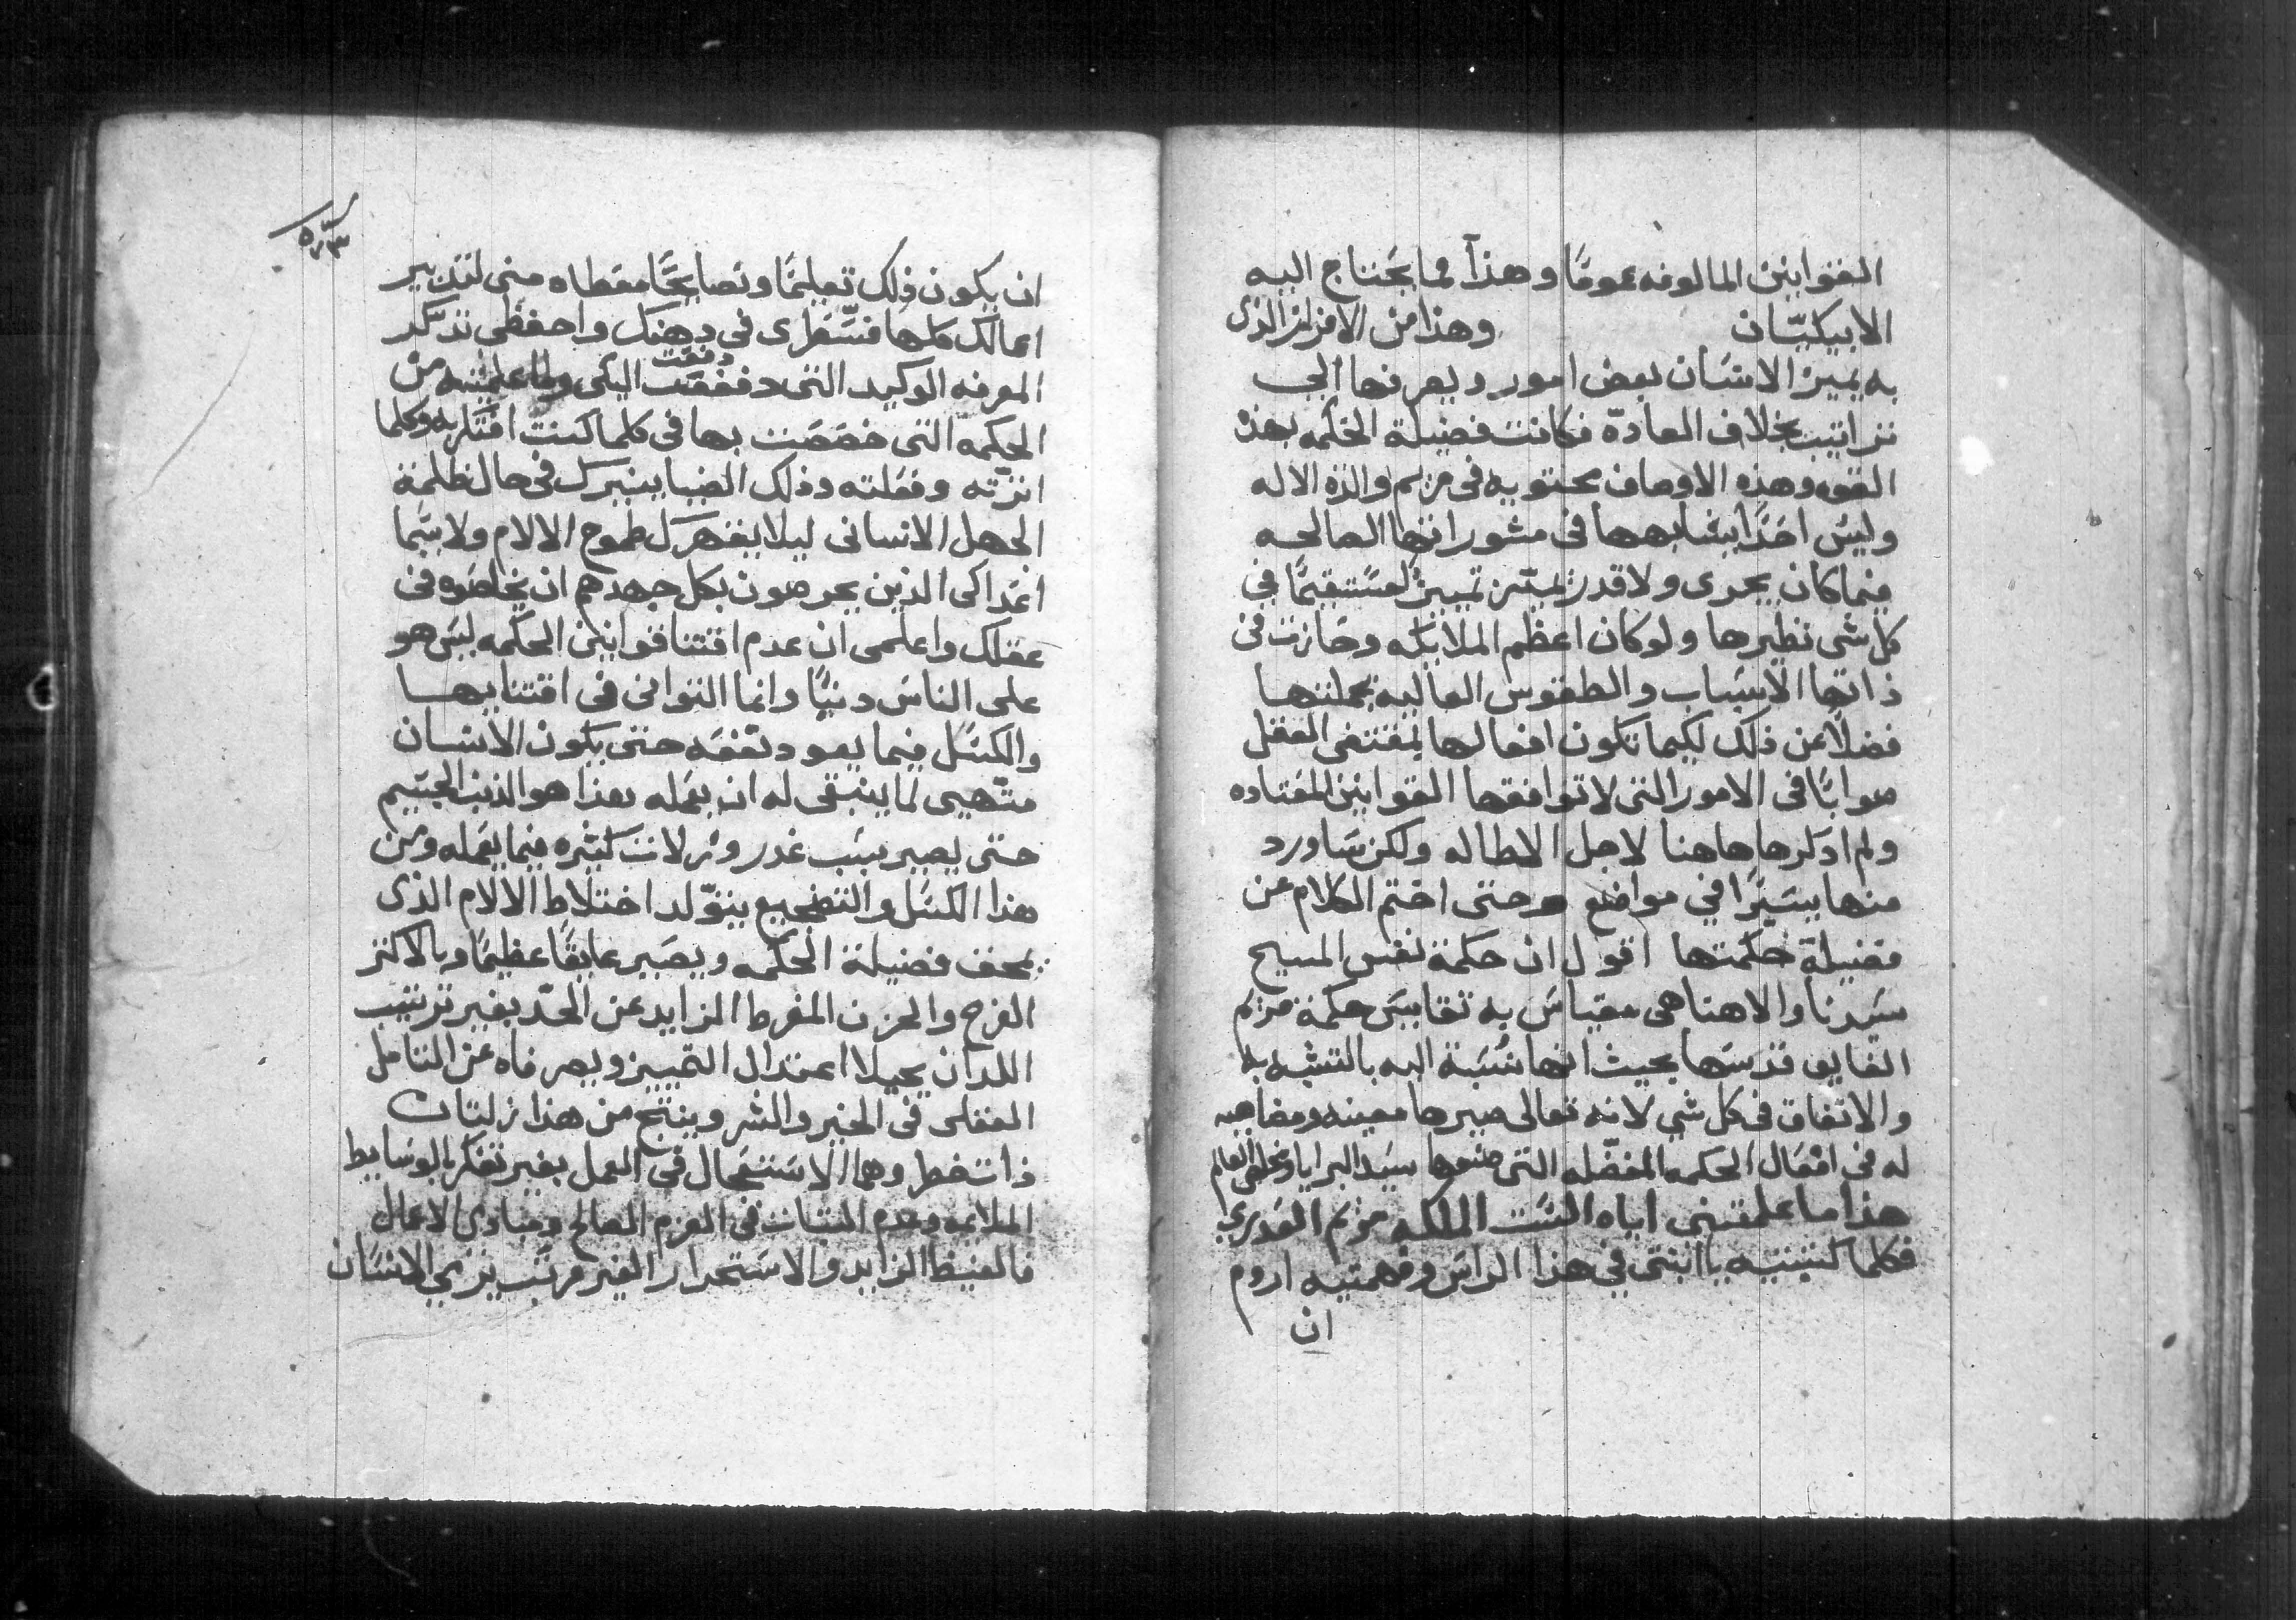 القوانين المالوفه عمومًا وهذا مما يحتاج اليه
الابيكيّان وهذا من الافراز الذى
به يميز الانسان بعض امور ويعرفها الى
تراتيب بخلاف العادّة فكانت فضيلة الحكمه بهذ
القوه وهذه الاوصاف محتويه فى مريم والدة الاله
وليس احدًا يشابهها فى مشوراتها الصالحه
فيما كان يجرى ولا قدر تميّز تمييزًا مستقيمًا في
كل شى نظيرها ولو كان اعظم الملايكه وحازت فى
ذاتها الاسباب والطقوس العاليه بجملتها
فضلاً عن ذلك لكيما تكون افعالها بمقتضى العقل
صوابًا فى الامور التى لا توافقها القوانين المعتاده
ولم ادكرها هاهنا لاجل الاطاله ولكن ساورد
منها يسيرًا في مواضع حتى اختم الكلام عن
فضيلة حكمتها اقول ان حكمة نفس المسيح
سيدنا والاهنا هى مقياس به تقايس حكمة مريم
الفايق قدسها بحيث انها نُسبَة اليه بالتشبه به
والاتفاق فى كل شي لانه تعالى صيرها معينه ومضاهيه
له فى افعال الحكمه المفضّله التى صنعها سيد البرايا ومخلص العالم
هذا ما علمتني اياه الست الملكه مريم العدري
فكلما كتبتيه يا ابنتى في هذا الراس وفهمتيه اروم
ان
ان يكون ذلك تعليمًا ونصايحًا معطاه منى لتدبير
اعمالك كلها فسّطرى فى دهنك واحفظى تدكّر
المعرفه الوكيد التى دفعت اليكى ولما علمتيه من
دفعت
الحكمه التى خصصت بها فى كلما كنت افتكر به وكلما
اثرته وفعلته وذلك الضيا ينيرك فى حال ظلمة
الجهل الانسانى ليلا يقهرك طموح الالام ولا سيما
اعداكى الذين يحرصون بكل جهدهم ان يخامروه فى
عقلك واعلمى ان عدم اقتنا قوانين الحكمه ليس هو
على الناس دنيًا وانما التوانى فى اقتنايها
والكسل فيما يعود نفعه حتى يكون الانسان
متّهيى لما ينبغى له ان يعمله بهذا هو الذنب الجسيم
حتى يصير سبب غدر وزلات كثيره فيما يعمله ومن
هذا الكسل والتضجيع يتوّلد اختلاط الالام الذى
يمحف فضيلة الحكمه ويصير عايقًا عظيمًا وبالاكثر
الفرح والحزن المفرط الزايد عن الحد بغير ترتيب
اللدان يحيلا اعتدال التمييز ويصرفاه عن التامل
العقلى فى الخير والشر وينتج من هذا زلتان
ذات خطر وهما الاستعجال فى العمل بغير تفكر بالوسايط
الملايمه وعدم الثبات فى العزم الصالح ومبادى الاعمال
فالغيظ الزايد والاستحرار الغير مرتب يزري الانسان